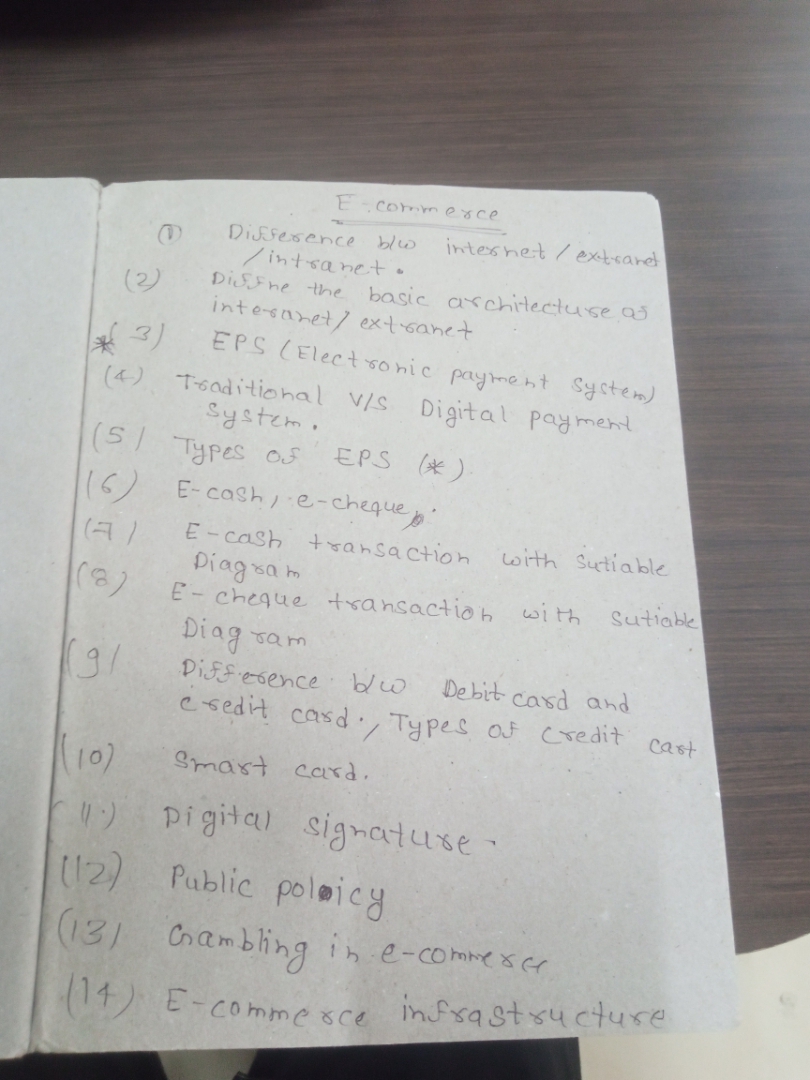 E-commerce
(1) Difference b/w internet / extranet
/intranet.
(2) Diffne the basic architecture of
interanet / extranet
*(3) EPS (Electronic payment System)
(4) Traditional V/S Digital payment
System.
(5) Types of EPS (*)
(6) E-cash, e-cheque,.
(7) E-cash transaction with Sutiable
Diagram
(8) E-cheque transaction with sutiable
Diagram
(9) Difference b/w Debit card and
credit card., Types of credit cart
(10) Smart card.
(11.) Digital signature.
(12) Public policy
(13) Gambling in e-commerce
(14) E-commerce infrastructure